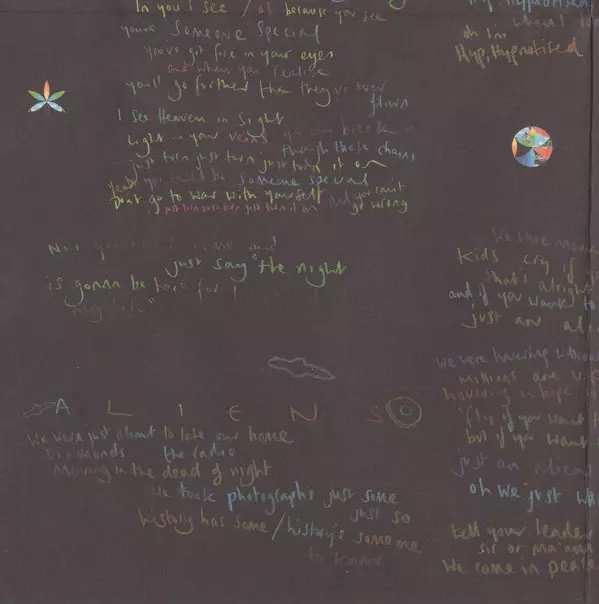 In you I see / cos because you see
you're Someone Special
You've got fire in your eyes
and when you realise
you'll go further than they've ever
flown
I See Heaven in Sight
Light in your veins you can break
through those chains
just turn just turn just turn it on
Yeah you could be someone special
Don't go to war with yourself and you can't
just turn just turn just turn it on go wrong
time and
just say "the night
is gonna be
A L I E N S
We were just about to lose our home
Diamonds the radio
Moving in the dead of night
We took photographs just some
just so
history has some / history's some me
to know
Hyp, Hypnotised
when I
oh I'm
Hyp, Hypnotised
we were
kids cry if
that's alright
and if you want to
just an al
We were hovering without
millions are
hovering in hope
"fly if you want
but if you want
just an alien
oh we just wa
tell your leader
sir or ma'am
We come in peace